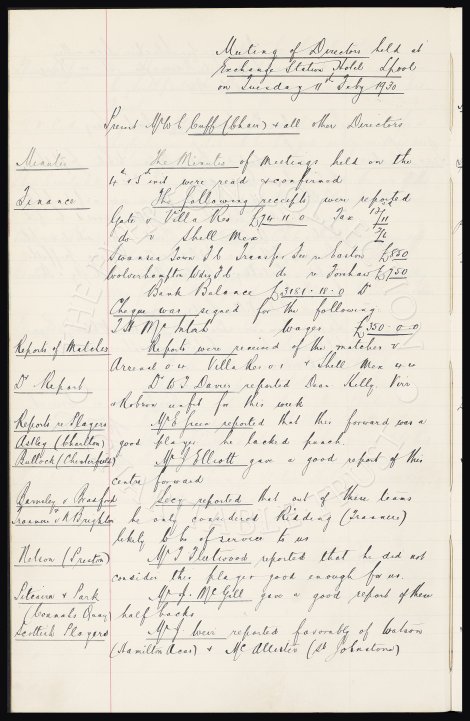 Meeting of Directors held at
Exchange Station Hotel Lpool
on Tuesday 11th Feby 1930
Present Mr W C Cuff (Chair) & all other Directors
Minutes The Minutes of Meetings held on the
4th & 5th inst were read & confirmed
Finance The following receipts were reported
Gate v Villa Res £74 11 0 Tax 13/11
do v Shell Mex 7/6
Swansea Town Fc Transfer Fee re Easton £850
Wolverhampton Wdrs Fc do re £750
Bank Balance £3181-18-0 Dr
Cheque was signed for the following:
T. H. McIntosh Wages £350-0-0
Reports of Matches Reports were received of the matches v
Arsenal Villa Res & Shell Mex
Dr Report Dr D J Davies reported Dean Kelly
& Robson unfit for this week
Reports re Players Mr E Green reported that this forward was a
Astley (Charlton) good player he lacked punch.
Bullock (Chesterfield) Mr J Elliott gave a good report of this
centre forward
Barnsley v Bradford Secy reported that out of these teams
Tranmere v N Brighton he only considered Ridding (Tranmere)
likely to be of service to us
Nelson (Preston) Mr T Fleetwood reported that he did not
consider this player good enough for us.
& Park Mr J. McGill gave a good report of these
(Connahs Quay) half backs
Scottish Players Mr J Weir reported favorably of Watson
(Hamilton Acas) & McAllister (St Johnstone)